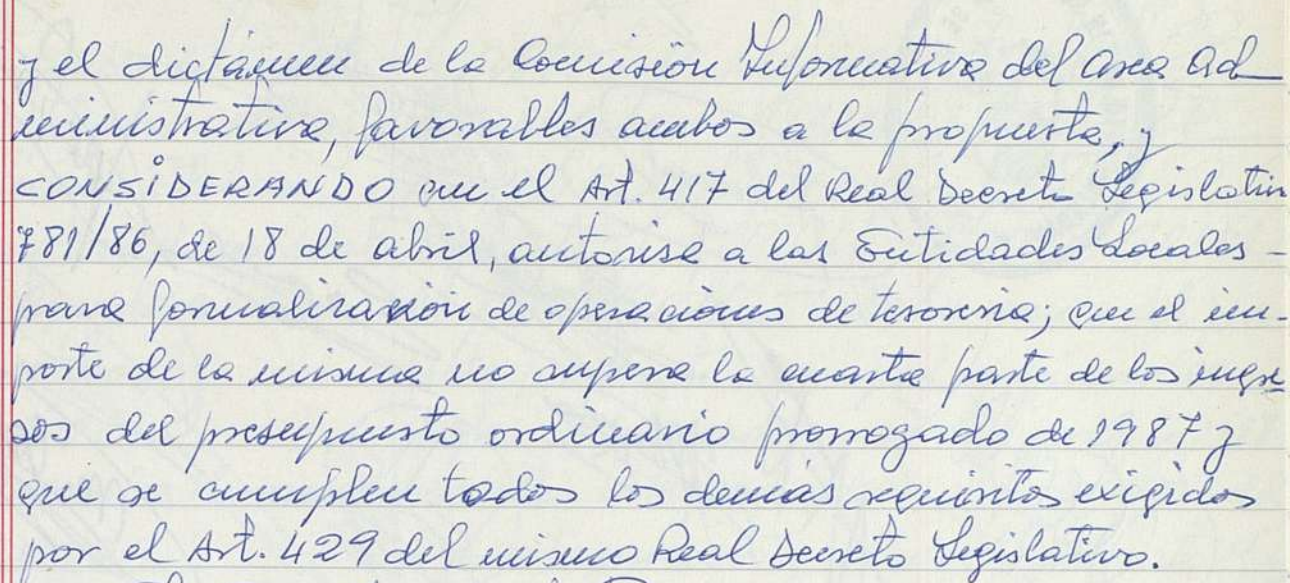 y el dictámen de la Comisión Informativa del area ad
ministrativa, favorables ambos a la propuesta, y
CONSIDERANDO que el Art. 417 del Real Decreto Legislativo
781/86, de 18 de abril, autorisa a las Entidades Locales -
para formalización de operaciones de tesoreria; que el im-
porte de la misma no supera la cuarta parte de los ingre
sos del presupuesto ordinario prorrogado de 1987 y
que se cumplen todos los demás requisitos exigidos
por el Art. 429 del mismo Real Decreto Legislativo.